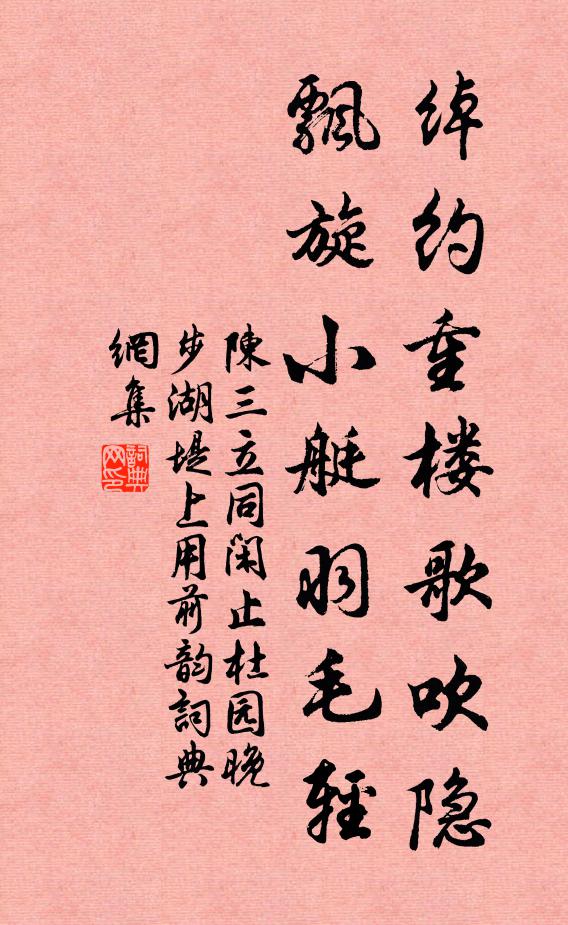 绰约重楼歌吹隐
飘旋小艇羽毛轻
陳三立同闲止杜园晚
步湖堤上用前韵詞典
網集
詞典
网印